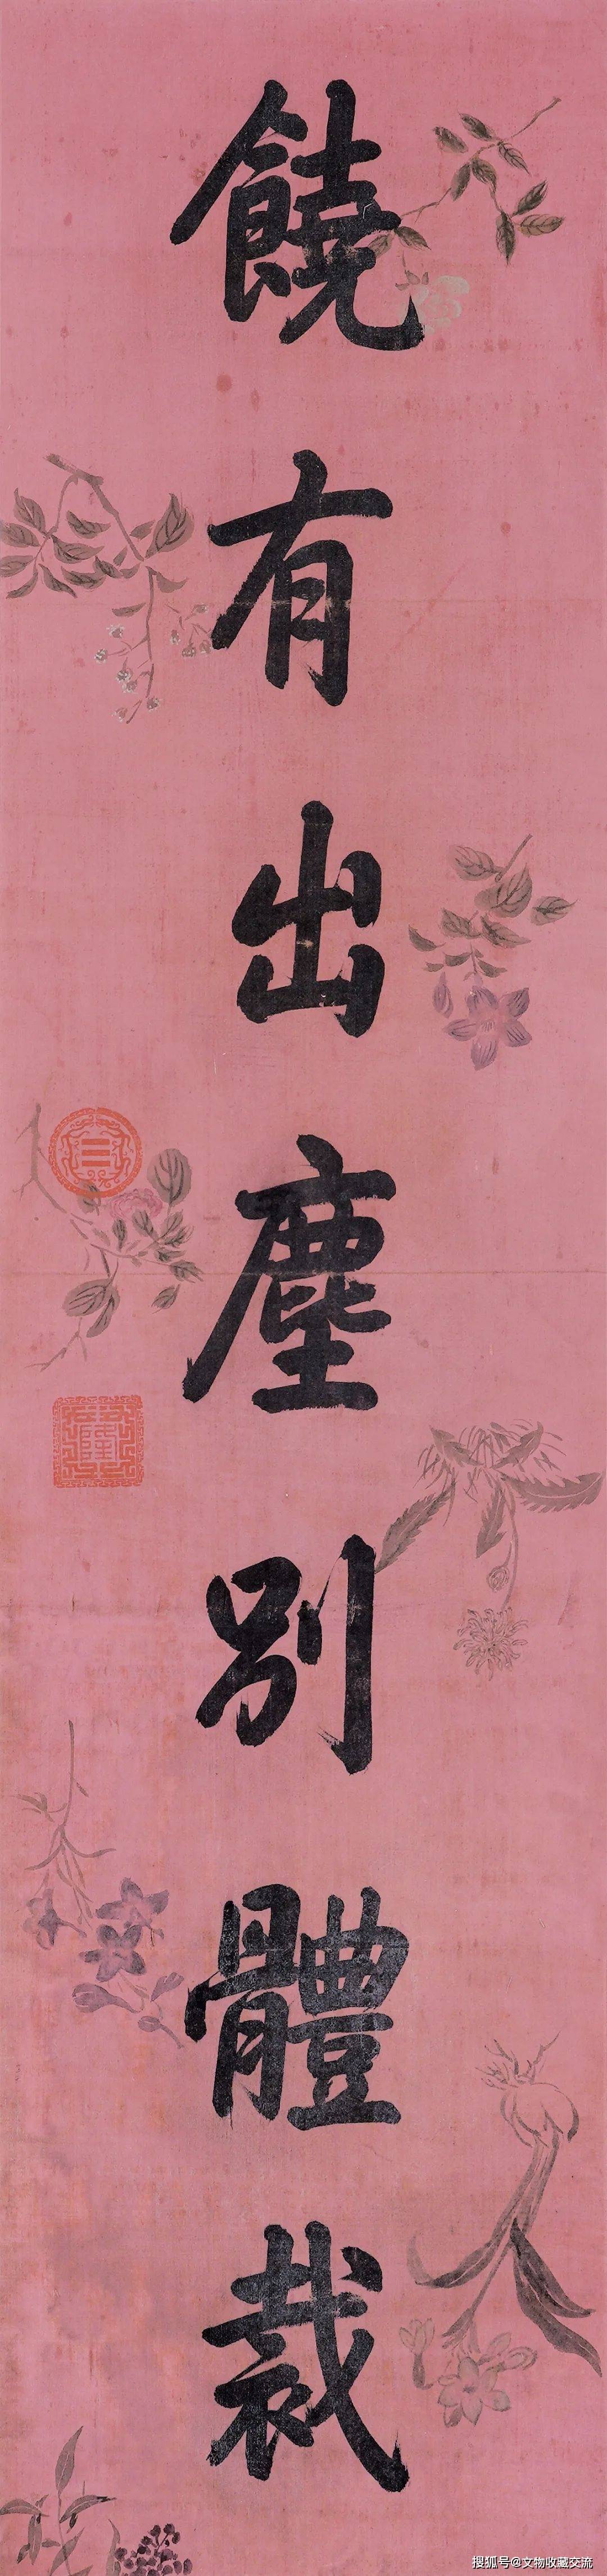 饒有出塵別體裁
搜狐号@文物收藏交流